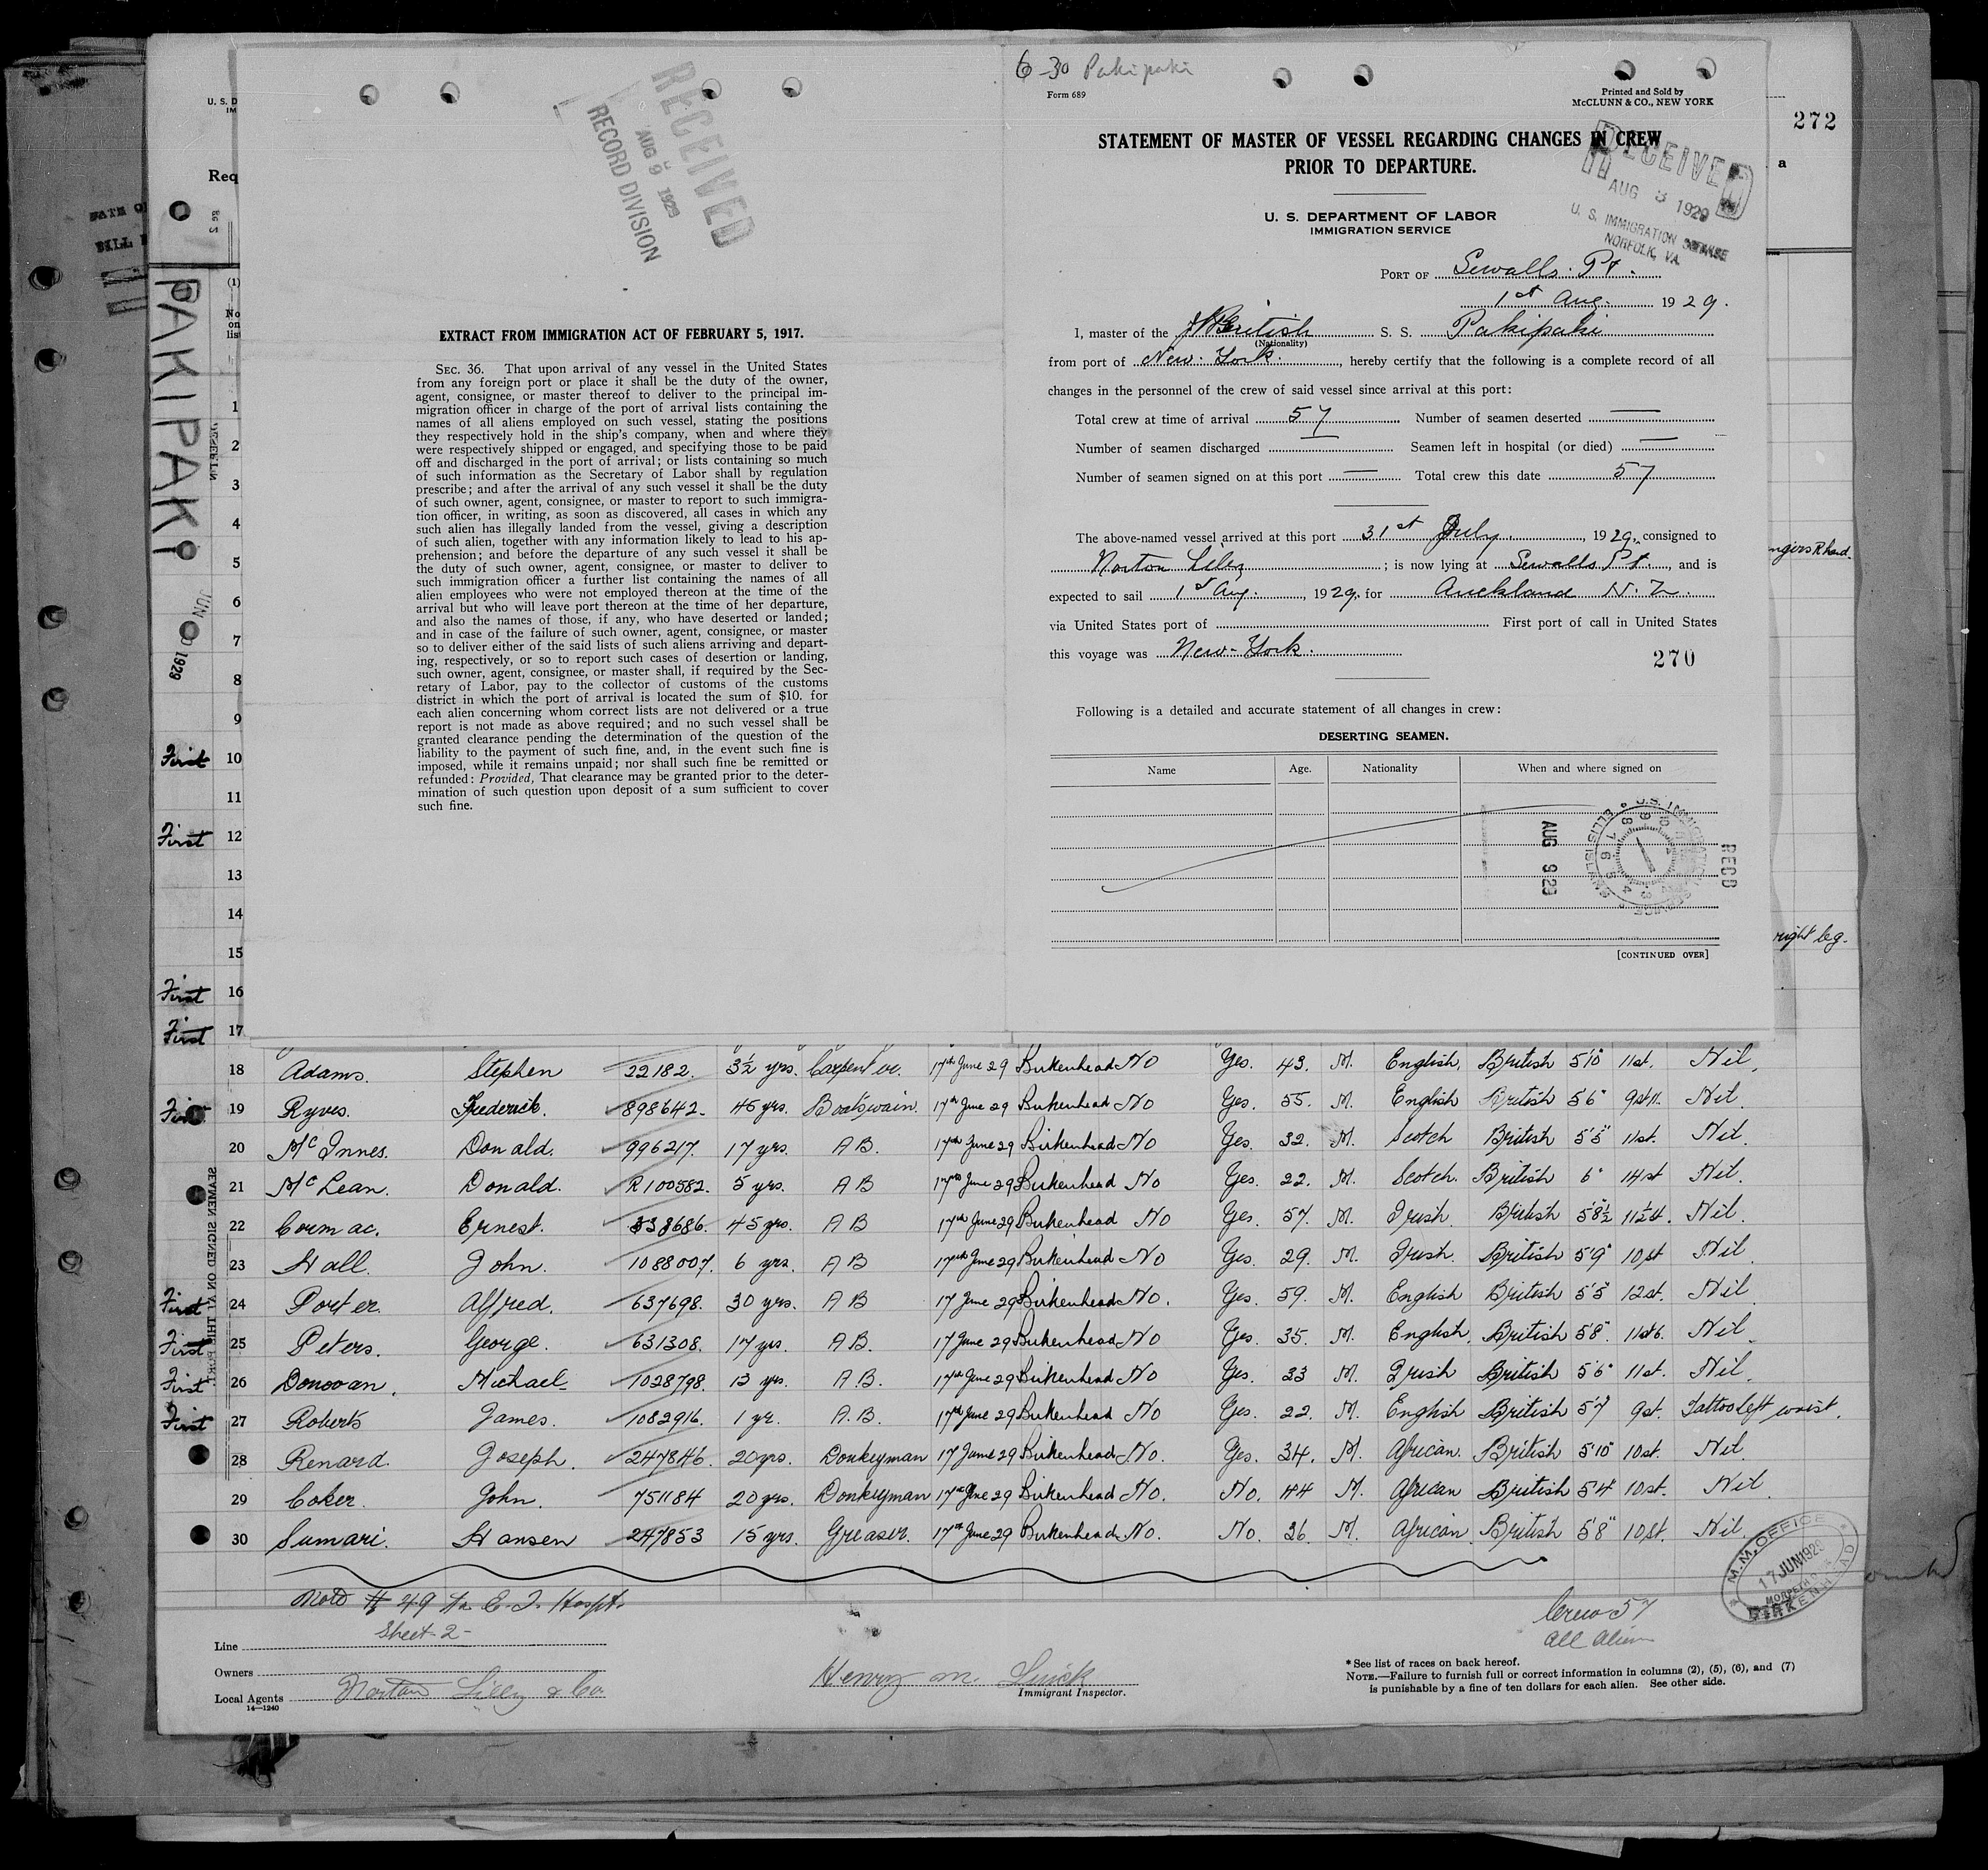 6-30 Pakipaki
Form 689
Printed and Sold by
McCLUNN & CO., NEW YORK
272
U. S. D
IM
Req
a
RECEIVED
AUG 9 1929
RECORD DIVISION
STATEMENT OF MASTER OF VESSEL REGARDING CHANGES IN CREW
PRIOR TO DEPARTURE.
RECEIVED
AUG 3 1929
U. S. IMMIGRATION
NORFOLK, VA.
U. S. DEPARTMENT OF LABOR
IMMIGRATION SERVICE
PORT OF Sewalls Pt.
1st Aug. 1929.
I, master of the British S. S. Pakipaki
(Nationality)
from port of New York, hereby certify that the following is a complete record of all
changes in the personnel of the crew of said vessel since arrival at this port:
Total crew at time of arrival 57 Number of seamen deserted —
Number of seamen discharged — Seamen left in hospital (or died) —
Number of seamen signed on at this port — Total crew this date 57
The above-named vessel arrived at this port 31st July, 1929, consigned to
Norton Lilly; is now lying at Sewalls Pt., and is
expected to sail 1st Aug., 1929, for Auckland N. Z.
via United States port of First port of call in United States
this voyage was New-York.
270
Following is a detailed and accurate statement of all changes in crew:
DESERTING SEAMEN.
Name Age. Nationality When and where signed on
RECD
AUG 9 29
U.S. IMMIGRATION SERVICE ELLIS ISLAND
[CONTINUED OVER]
EXTRACT FROM IMMIGRATION ACT OF FEBRUARY 5, 1917.
SEC. 36. That upon arrival of any vessel in the United States
from any foreign port or place it shall be the duty of the owner,
agent, consignee, or master thereof to deliver to the principal im-
migration officer in charge of the port of arrival lists containing the
names of all aliens employed on such vessel, stating the positions
they respectively hold in the ship's company, when and where they
were respectively shipped or engaged, and specifying those to be paid
off and discharged in the port of arrival; or lists containing so much
of such information as the Secretary of Labor shall by regulation
prescribe; and after the arrival of any such vessel it shall be the duty
of such owner, agent, consignee, or master to report to such immigra-
tion officer, in writing, as soon as discovered, all cases in which any
such alien has illegally landed from the vessel, giving a description
of such alien, together with any information likely to lead to his ap-
prehension; and before the departure of any such vessel it shall be
the duty of such owner, agent, consignee, or master to deliver to
such immigration officer a further list containing the names of all
alien employees who were not employed thereon at the time of the
arrival but who will leave port thereon at the time of her departure,
and also the names of those, if any, who have deserted or landed;
and in case of the failure of such owner, agent, consignee, or master
so to deliver either of the said lists of such aliens arriving and depart-
ing, respectively, or so to report such cases of desertion or landing,
such owner, agent, consignee, or master shall, if required by the Sec-
retary of Labor, pay to the collector of customs of the customs
district in which the port of arrival is located the sum of $10. for
each alien concerning whom correct lists are not delivered or a true
report is not made as above required; and no such vessel shall be
granted clearance pending the determination of the question of the
liability to the payment of such fine, and, in the event such fine is
imposed, while it remains unpaid; nor shall such fine be remitted or
refunded: Provided, That clearance may be granted prior to the deter-
mination of such question upon deposit of a sum sufficient to cover
such fine.
PAKIPAKI
JUN 1929
(1)
No
on
list
1
2
3
4
5
6
7
8
9
First 10
11
First 12
13
14
15
First 16
First 17
right leg.
SEAMEN SIGNED ON AT THIS PORT
18 Adams. Stephen 22182. 3½ yrs. Carpenter. 17th June 29 Birkenhead No Yes. 43. M. English. British 5'10" 11st. Nil.
First 19 Ryves. Frederick. 898642. 45 yrs. Boatswain. 17th June 29 Birkenhead No Yes. 55. M. English British 5'6" Nil.
20 McInnes. Donald. 996217. 17 yrs. AB. 17th June 29 Birkenhead No Yes. 32. M. Scotch British 5'5" 11st. Nil.
21 McLean. Donald. R100582. 5 yrs. AB 17th June 29 Birkenhead No Yes. 22. M. Scotch. British 6" 14st Nil.
22 Cormac. Ernest. 338686. 45 yrs. AB 17th June 29 Birkenhead No Yes. 57. M. Irish. British 5'8½ 11½st. Nil.
23 Hall. John. 1088007. 6 yrs. AB 17th June 29 Birkenhead No Yes. 29. M. Irish. British 5'9" 10st Nil
First 24 Porter. Alfred. 637698. 30 yrs. AB 17 June 29 Birkenhead No. Yes. 59. M. English British 5'5" 12st. Nil
First 25 Peters. George. 631308. 17 yrs. AB. 17 June 29 Birkenhead No Yes. 35. M. English. British 5'8". 11st6. Nil.
First 26 Donovan. Michael 1028798. 13 yrs. A.B. 17th June 29 Birkenhead No Yes. 33 M. Irish British 5'6" 11st. Nil.
First 27 Roberts James. 1082916. 1 yr. A.B. 17th June 29 Birkenhead No Yes. 22. M. English British 5'7 9st. Tattoo left wrist.
28 Renard. Joseph. 247846. 20 yrs. Donkeyman 17 June 29 Birkenhead No. Yes. 34. M. African. British 5'10" 10st. Nil
29 Coker. John. 751184 20 yrs. Donkeyman 17th June 29 Birkenhead No. No. 44 M. African British 5'4" 10st. Nil.
30 Sumari. Hansen 247853 15 yrs. Greaser. 17th June 29 Birkenhead No. No. 36 M. African British 5'8" 10st. Nil.
M. M. OFFICE
17 JUN 1929
BIRKENHEAD
Note # 49 to E. I. Hospt.
Sheet-2-
Crew 57
All Alien
Line
Owners
Local Agents Norton Lilly & Co.
14—1240
Henry M.
Immigrant Inspector.
*See list of races on back hereof.
NOTE.—Failure to furnish full or correct information in columns (2), (5), (6), and (7)
is punishable by a fine of ten dollars for each alien. See other side.